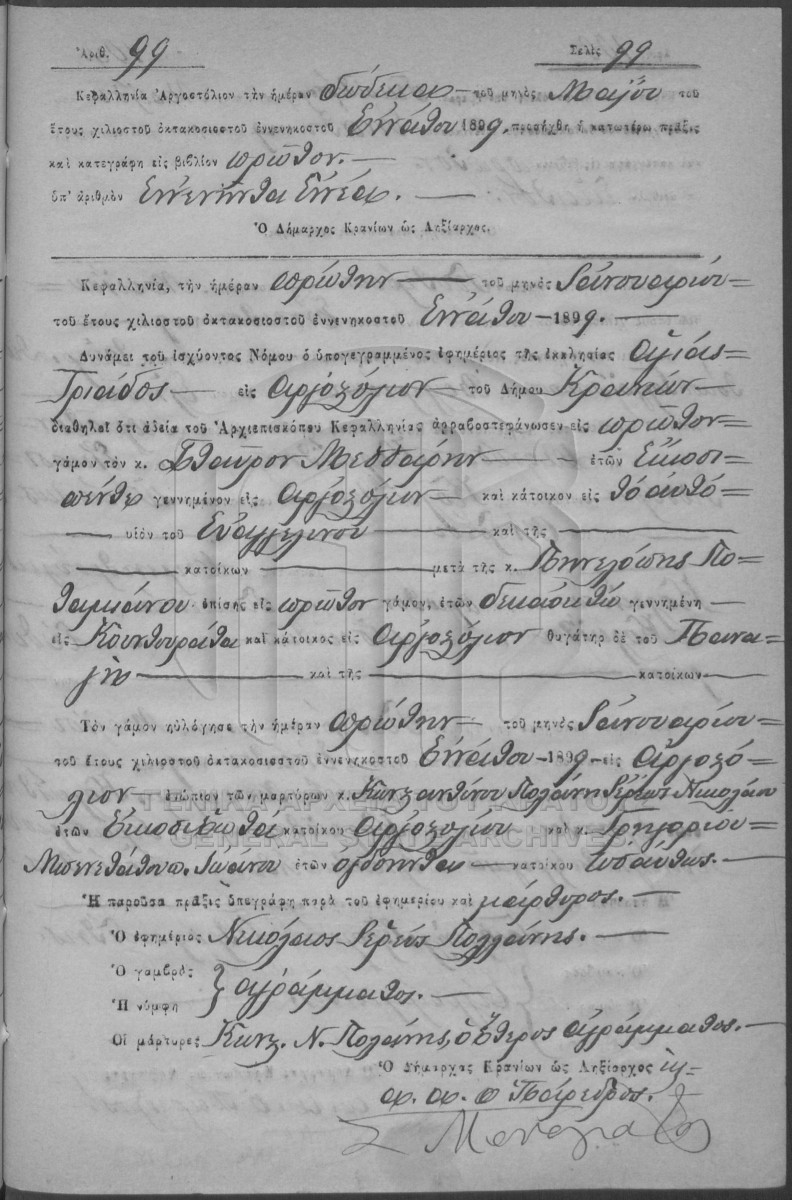 Ἀριθ. 99 Σελὶς 99
Κεφαλληνία Ἀργοστόλιον τὴν ἡμέραν δώδεκα τοῦ μηνὸς Μαΐου τοῦ
ἔτους χιλιοστοῦ ὀκτακοσιοστοῦ ἐννενηκοστοῦ Ἐννάτου 1899, προσήχθη ἡ κατωτέρω πρᾶξις
καὶ κατεγράφη εἰς βιβλίον πρῶτον.
ὑπ' ἀριθμὸν Ἐννενῆντα Ἐννέα.
Ὁ Δήμαρχος Κρανίων ὡς Ληξίαρχος.
Κεφαλληνία, τὴν ἡμέραν πρώτην τοῦ μηνὸς Ἰανουαρίου
τοῦ ἔτους χιλιοστοῦ ὀκτακοσιοστοῦ ἐννενηκοστοῦ Ἐννάτου - 1899.
Δυνάμει τοῦ ἰσχύοντος Νόμου ὁ ὑπογεγραμμένος ἐφημέριος τῆς ἐκκλησίας Ἁγίας
Τριάδος εἰς Ἀργοστόλιον τοῦ Δήμου Κρανίων
διαθηλοῖ ὅτι ἀδεία τοῦ Ἀρχιεπισκόπου Κεφαλληνίας ἀρραβοστεφάνωσεν εἰς πρῶτον
γάμον τὸν κ. Σταῦρον ἐτῶν Εἴκοσι
πέντε γεννημένον εἰς Ἀργοστόλιον καὶ κάτοικον εἰς τὸ αὐτό
υἱὸν τοῦ Εὐαγγελινοῦ καὶ τῆς
κατοίκων μετὰ τῆς κ. Πηνελόπης Πο-
ταμιάνου ἐπίσης εἰς πρῶτον γάμον, ἐτῶν δεκαοκτὼ γεννημένη
εἰς Κουντουράτα καὶ κάτοικος εἰς Ἀργοστόλιον θυγάτηρ δὲ τοῦ Πανα-
γῆ καὶ τῆς κατοίκων
Τὸν γάμον ηὐλόγησε τὴν ἡμέραν πρώτην τοῦ μηνὸς Ἰανουαρίου
τοῦ ἔτους χιλιοστοῦ ὀκτακοσιοστοῦ ἐννενηκοστοῦ Ἐννάτου - 1899 - εἰς Ἀργοστό-
λιον ἐνώπιον τῶν μαρτύρων κ. Κωνσταντίνου Πολλάνη Ἱερέως Νικολάου
ἐτῶν Εἰκοσιεπτά κατοίκου Ἀργοστολίου καὶ κ. Γρηγορίου
Μισενετάτου π. Ἰωάννου ἐτῶν ὀγδοήντα κατοίκου ὡσαύτως.
Ἡ παροῦσα πρᾶξις ὑπεγράφη παρὰ τοῦ ἐφημερίου καὶ μάρτυρος.
Ὁ ἐφημέριος Νικόλαος Ἱερεὺς Πολλάνης.
Ὁ γαμβρὸς
Ἡ νύμφη } ἀγράμματος.
Οἱ μάρτυρες Κωνστ. Ν. Πολάνης, ὁ ἕτερος ἀγράμματος.
Ὁ Δήμαρχος Κρανίων ὡς Ληξίαρχος
α. α. ὁ Πάρεδρος.
ΓΕΝΙΚΑ ΑΡΧΕΙΑ ΤΟΥ ΚΡΑΤΟΥΣ
GENERAL STATE ARCHIVES